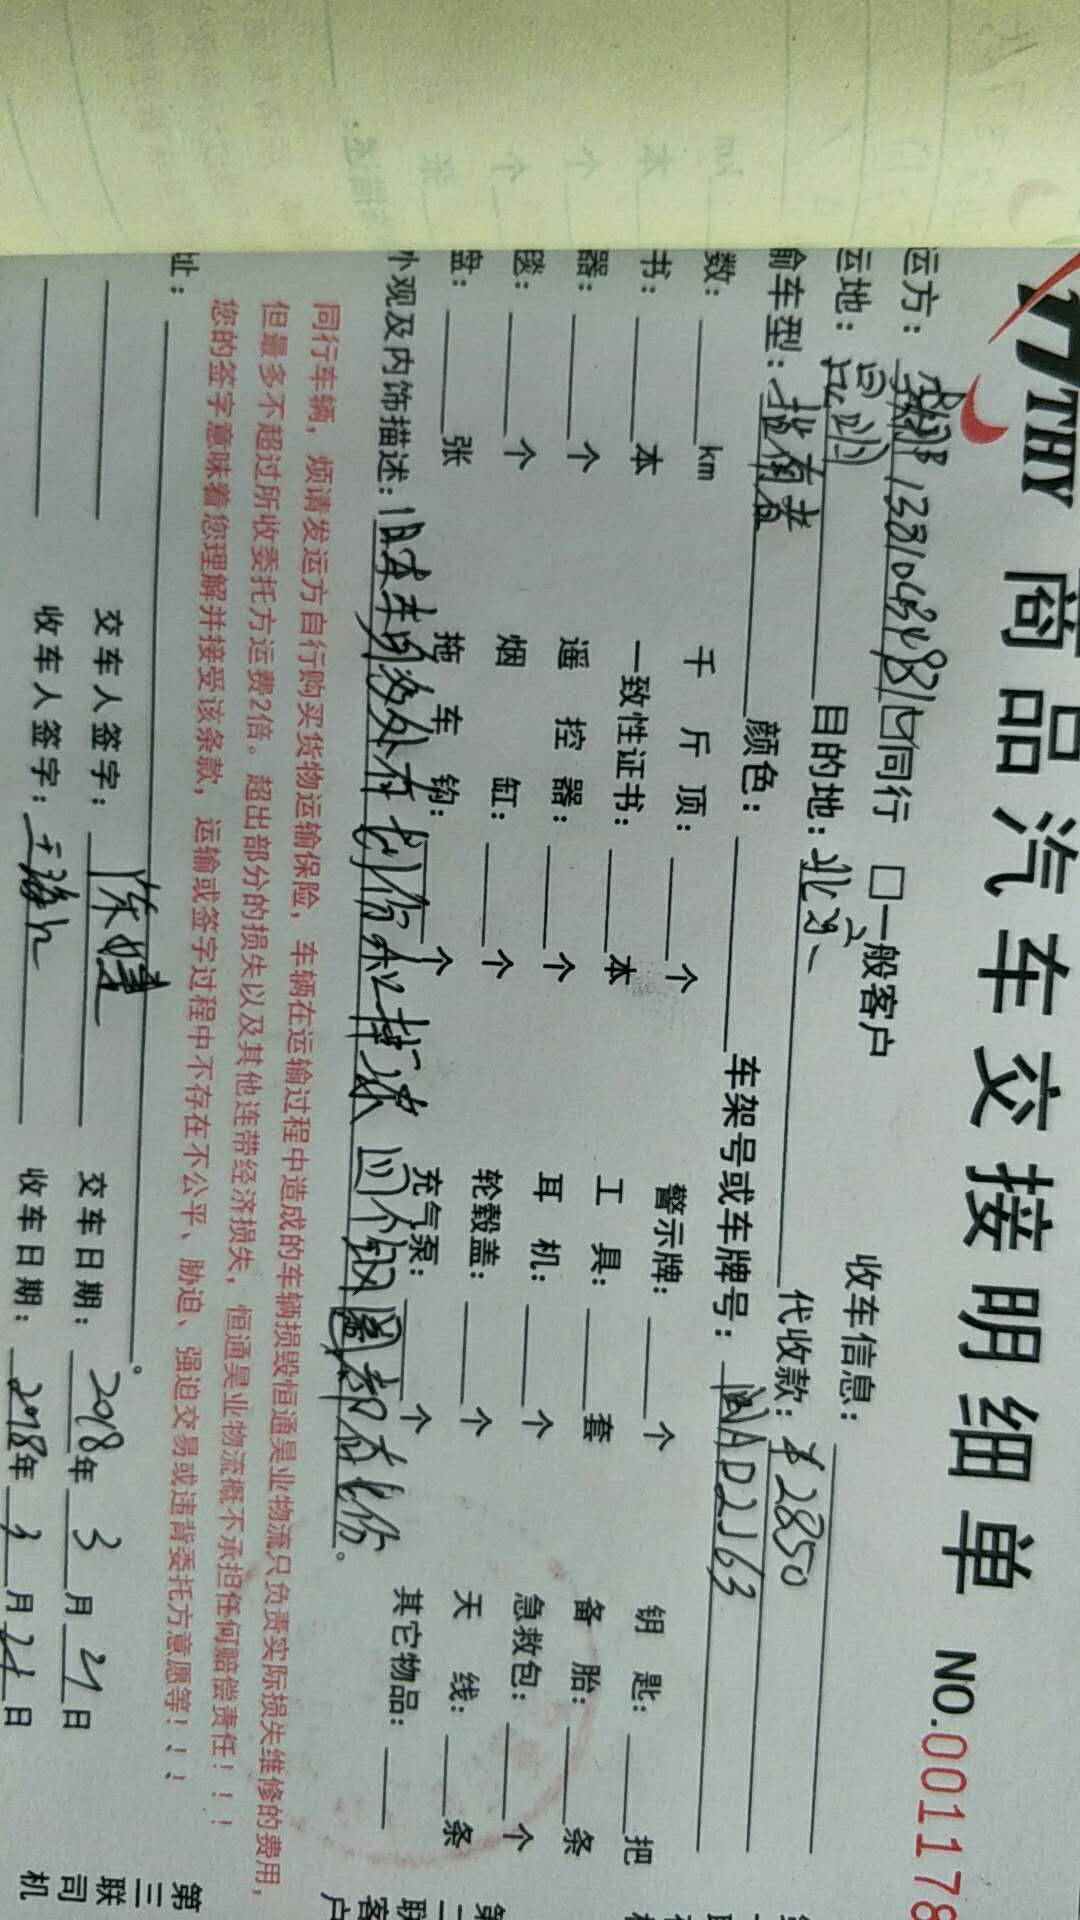 THY 商品汽车交接明细单 NO.001178
运方： 13310434871 同行 □一般客户 收车信息：
运地： 目的地：北京 代收款：¥2850
输车型：揽胜 颜色： 车架号或车牌号： AD2J63
数： km 千斤顶： 个 警示牌： 个 钥匙： 把
书： 本 一致性证书： 本 工具： 套 备胎： 条
器： 个 遥控器： 个 耳机： 个 急救包： 个
毯： 个 烟缸： 个 轮毂盖： 个 天线： 条
盘： 张 拖车钩： 个 充气泵： 个 其它物品：
外观及内饰描述：旧车 多处有划伤和掉漆 四个钢圈都有划伤。
同行车辆，烦请发运方自行购买货物运输保险，车辆在运输过程中造成的车辆损毁恒通昊业物流只负责实际损失维修的费用，
但最多不超过所收委托方运费2倍。超出部分的损失以及其他连带经济损失，恒通昊业物流概不承担任何赔偿责任！！！
您的签字意味着您理解并接受该条款，运输或签字过程中不存在不公平、胁迫、强迫交易或违背委托方意愿等！！！
址： 。
交车人签字： 交车日期：2018年3月21日
收车人签字： 收车日期：2018年3月2 日
第三联司机